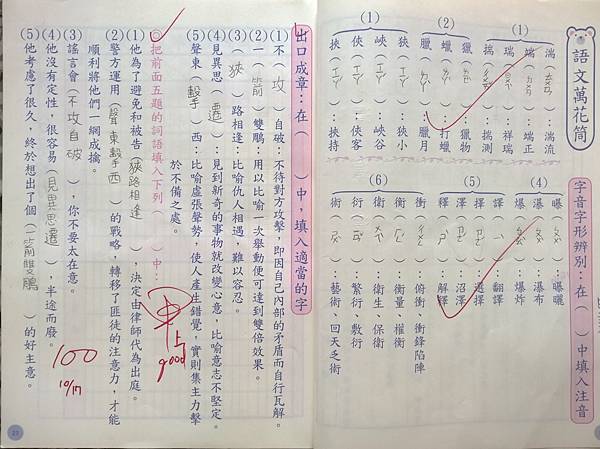 語文萬花筒
字音字形辨別：在（　）中填入注音
(1)
湍（ㄊㄨㄢ）：湍流
端（ㄉㄨㄢ）：端正
瑞（ㄖㄨㄟˋ）：祥瑞
揣（ㄔㄨㄞˇ）：揣測
(2)
獵（ㄌㄧㄝˋ）：獵物
獵：打獵
臘（ㄌㄚˋ）：臘月
(1)
狹（ㄒㄧㄚˊ）：狹小
峽（ㄒㄧㄚˊ）：峽谷
俠（ㄒㄧㄚˊ）：俠客
挾（ㄒㄧㄚˊ）：挾持
(4)
曝（ㄆㄨˋ）：曝曬
瀑（ㄆㄨˋ）：瀑布
爆（ㄅㄠˋ）：爆炸
(5)
譯（ㄧˋ）：翻譯
擇（ㄗㄜˊ）：選擇
澤（ㄗㄜˊ）：沼澤
釋（ㄕˋ）：解釋
(6)
衝（ㄔㄨㄥ）：俯衝、衝鋒陷陣
衡（ㄏㄥˊ）：衡量、權衡
衛（ㄨㄟˋ）：衛生、保衛
衍（ㄧㄢˇ）：繁衍、敷衍
術（ㄕㄨˋ）：藝術、回天乏術
出口成章：在（　）中，填入適當的字
(1)不（攻）自破：不待對方攻擊，即因自己內部的矛盾而自行瓦解。
(2)一（箭）雙鵰：用以比喻一次舉動便可達到雙倍效果。
(3)（狹）路相逢：比喻仇人相遇，難以容忍。
(4)見異思（遷）：見到新奇的事物就改變心意，比喻意志不堅定。
(5)聲東（擊）西：比喻虛張聲勢，使人產生錯覺，實則集主力擊
於不備之處。
◎把前面五題的詞語填入下列（　）中：
(1)他為了避免和被告（狹路相逢），決定由律師代為出庭。
(2)警方運用（聲東擊西）的戰略，轉移了匪徒的注意力，才能
順利將他們一網成擒。
(3)謠言會（不攻自破），你不要太在意。
(4)他沒有定性，很容易（見異思遷），半途而廢。
(5)他考慮了很久，終於想出了個（一箭雙鵰）的好主意。
good
100
10/17